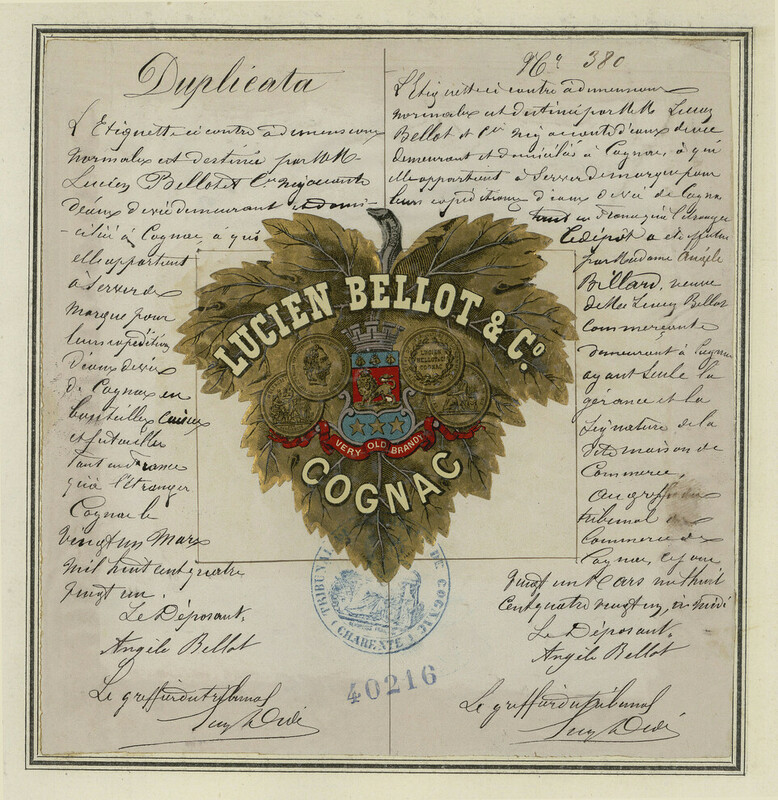 Duplicata
L'Etiquette ci contre à dimensions
normales est destinée par MM.
Lucien Bellot & Cie négociants
d'eaux de vie demeurant et domi-
-ciliés à Cognac, à qui
elle appartient
à Servir de
marque pour
leurs expéditions
d'eaux de vie
de Cognac en
bouteilles, caisses
et futailles
tant en France
qu'à l'étranger
Cognac le
vingt un Mars
mil huit cent quatre
vingt un.
Le Déposant,
Angèle Bellot
Le greffier du tribunal
No 380
L'Etiquette ci contre à dimensions
normales est destinée par MM. Lucien
Bellot et Cie négociants d'eaux de vie
demeurant et domiciliés à Cognac, à qui
elle appartient à Servir de marque pour
leurs expéditions d'eaux de vie de Cognac
tant en France qu'à l'étranger
Le dépôt a été effectué
par Madame Angèle
Billard, veuve
de Mr Lucien Bellot
Commerçante
demeurant à Cognac
ayant Seule la
gérance et la
Signature de la
dite maison de
Commerce,
au greffe du
tribunal de
Commerce de
Cognac, ce jour
vingt un Mars mil huit
cent quatre vingt un, à midi
Le Déposant,
Angèle Bellot
Le greffier du tribunal
LUCIEN BELLOT & Co.
LUCIEN
BELLOT & Co
COGNAC
VERY OLD BRANDY
COGNAC
TRIBUNAL DE COGNAC
(CHARENTE)
40216